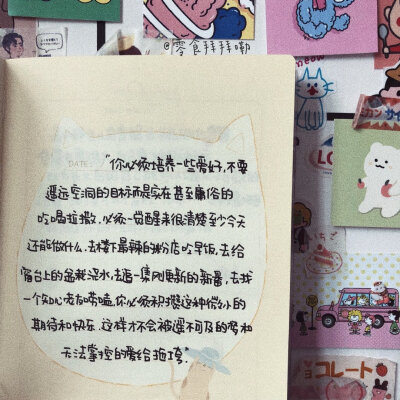 @零食拜拜嘞
DATE:
"你必须培养一些爱好,不要
遥远空洞的目标而是实在甚至庸俗的
吃喝拉撒,必须一觉醒来很清楚至少今天
还能做什么.去楼下最辣的粉店吃早饭,去给
窗台上的盆栽浇水,去追一集刚更新的新番,去找
一个知心友友唠嗑.你必须积攒这种微小的
期待和快乐.这样才不会被遥不可及的梦和
无法掌控的爱给拖垮."
meow
ミカン
コレート